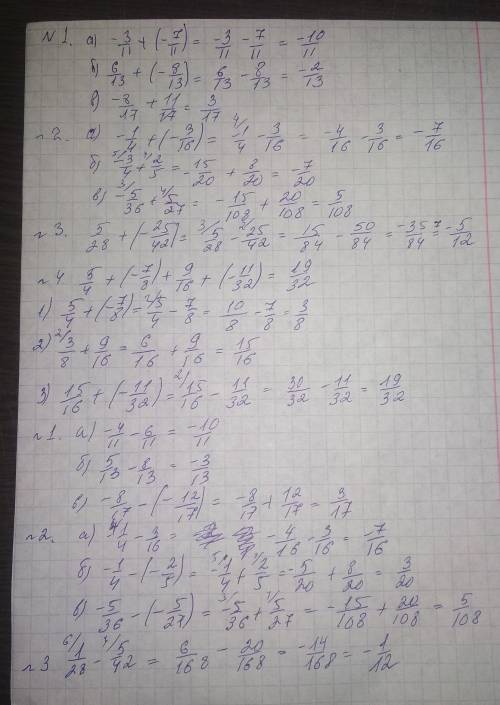 N 1. а) -3/11 + (-7/11) = -3/11 - 7/11 = -10/11
б) 6/13 + (-8/13) = 6/13 - 8/13 = -2/13
в) -8/17 + 11/17 = 3/17
N 2. а) -1/4 + (-3/16) = 4/ -1/4 - 3/16 = -4/16 - 3/16 = -7/16
б) 5/ -3/4 + 4/ 2/5 = -15/20 + 8/20 = -7/20
в) 3/ -5/36 + 4/ 5/27 = -15/108 + 20/108 = 5/108
N 3. 5/28 + (-25/42) = 3/ 5/28 - 2/ 25/42 = 15/84 - 50/84 = -35/84 = -5/12
N 4 5/4 + (-7/8) + 9/16 + (-11/32) = 19/32
1) 5/4 + (-7/8) = 2/ 5/4 - 7/8 = 10/8 - 7/8 = 3/8
2) 2/ 3/8 + 9/16 = 6/16 + 9/16 = 15/16
3) 15/16 + (-11/32) = 2/ 15/16 - 11/32 = 30/32 - 11/32 = 19/32
N 1. а) -4/11 - 6/11 = -10/11
б) 5/13 - 8/13 = -3/13
в) -8/17 - (-12/17) = -8/17 + 12/17 = 3/17
N 2. а) 4/ -1/4 - 3/16 = -4/16 - 3/16 = -7/16
б) -1/4 - (-2/5) = 5/ -1/4 + 4/ 2/5 = -5/20 + 8/20 = 3/20
в) -5/36 - (-5/27) = 3/ -5/36 + 5/27 = -15/108 + 20/108 = 5/108
N 3 6/ 1/28 - 4/ 5/42 = 6/168 - 20/168 = -14/168 = -1/12